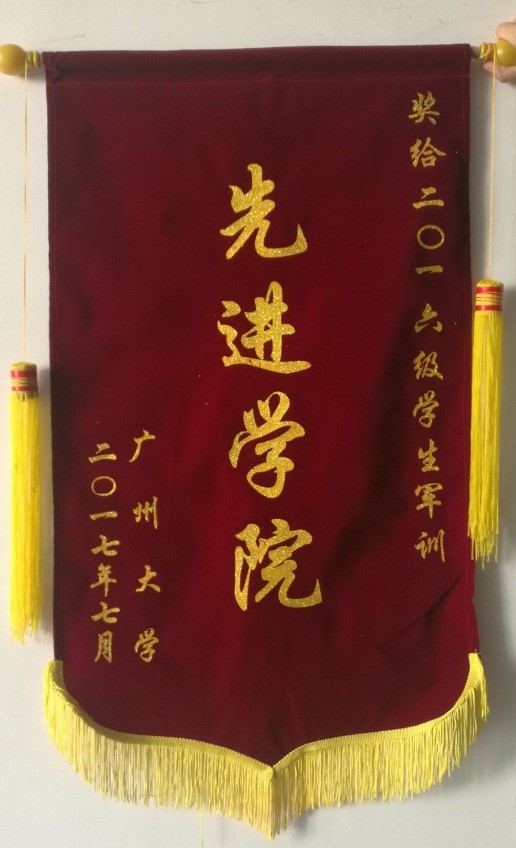 奖给二〇一六级学生军训
先进学院
广州大学
二〇一七年七月